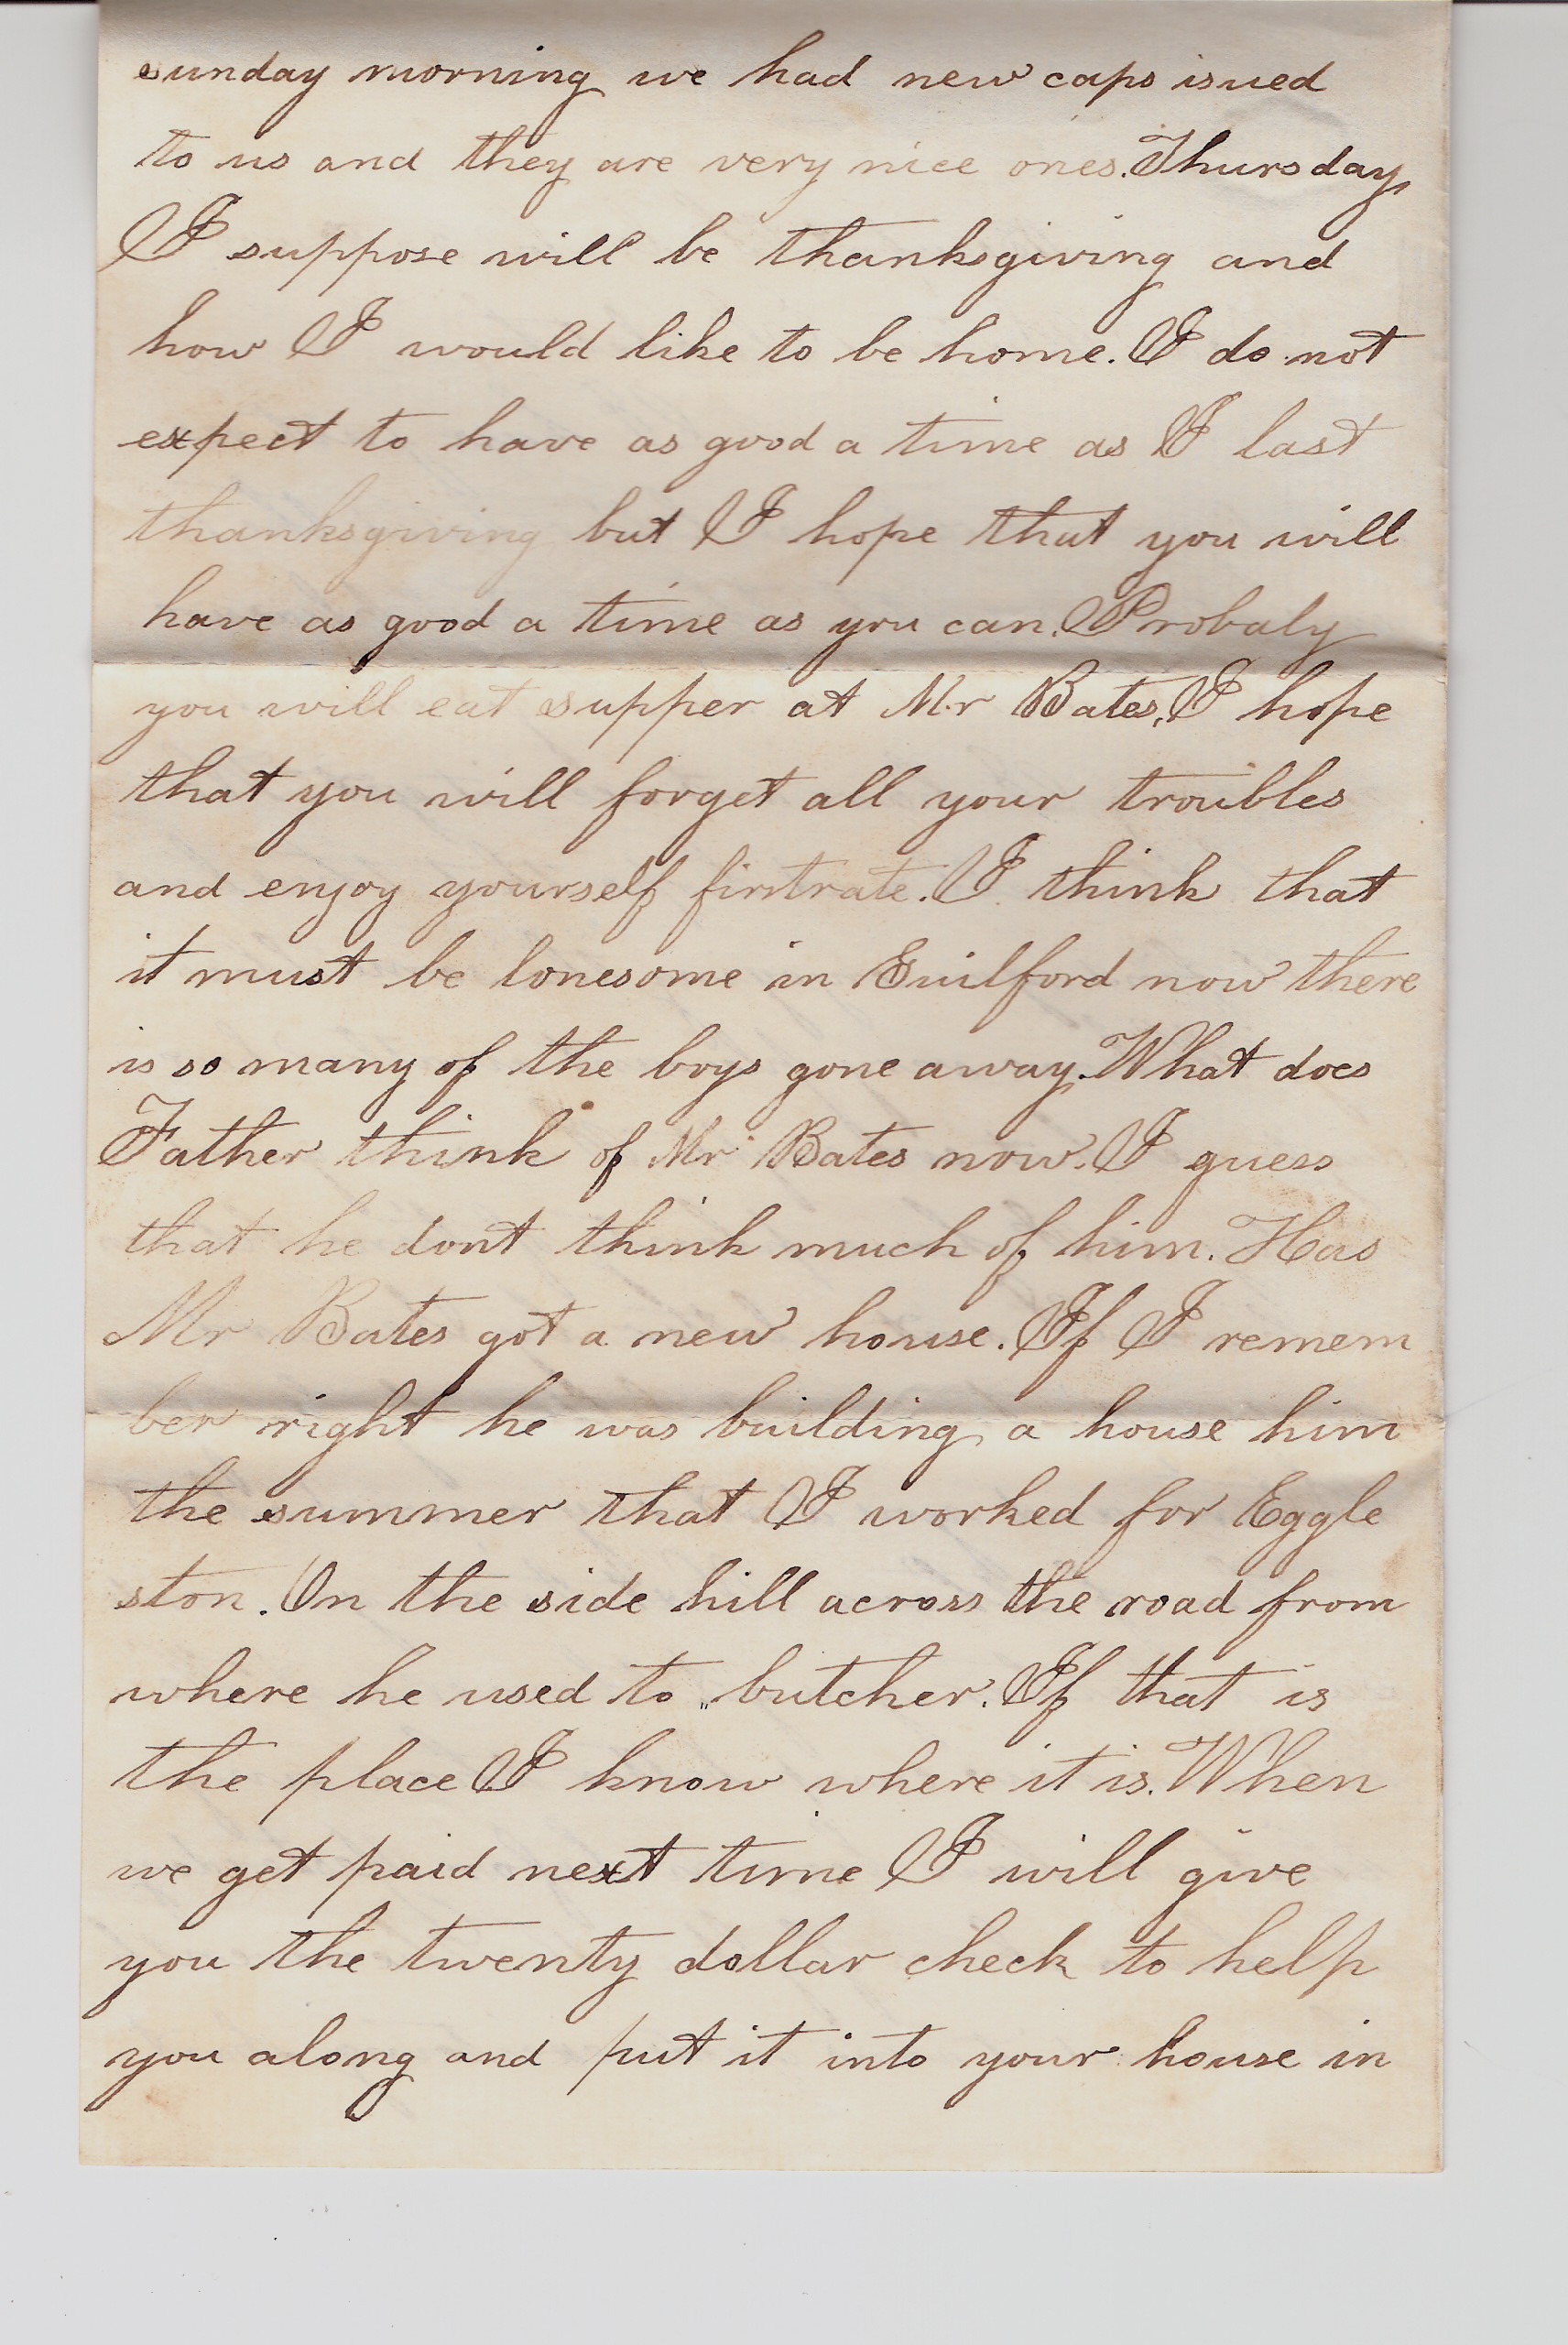 sunday morning we had new caps isued
to us and they are very nice ones. Thursday
I suppose will be thanksgiving and
how I would like to be home. I do not
expect to have as good a time as I last
thanksgiving but I hope that you will
have as good a time as you can. Probaly
you will eat supper at Mr Bates, I hope
that you will forget all your troubles
and enjoy yourself firstrate. I think that
it must be lonesome in Guilford now there
is so many of the boys gone away. What does
Father think of Mr Bates now. I guess
that he dont think much of him. Has
Mr Bates got a new house. If I remem
ber right he was building a house him
the summer that I worked for Eggle
ston. On the side hill across the road from
where he used to butcher. If that is
the place I know where it is. When
we get paid next time I will give
you the twenty dollar check to help
you along and put it into your house in